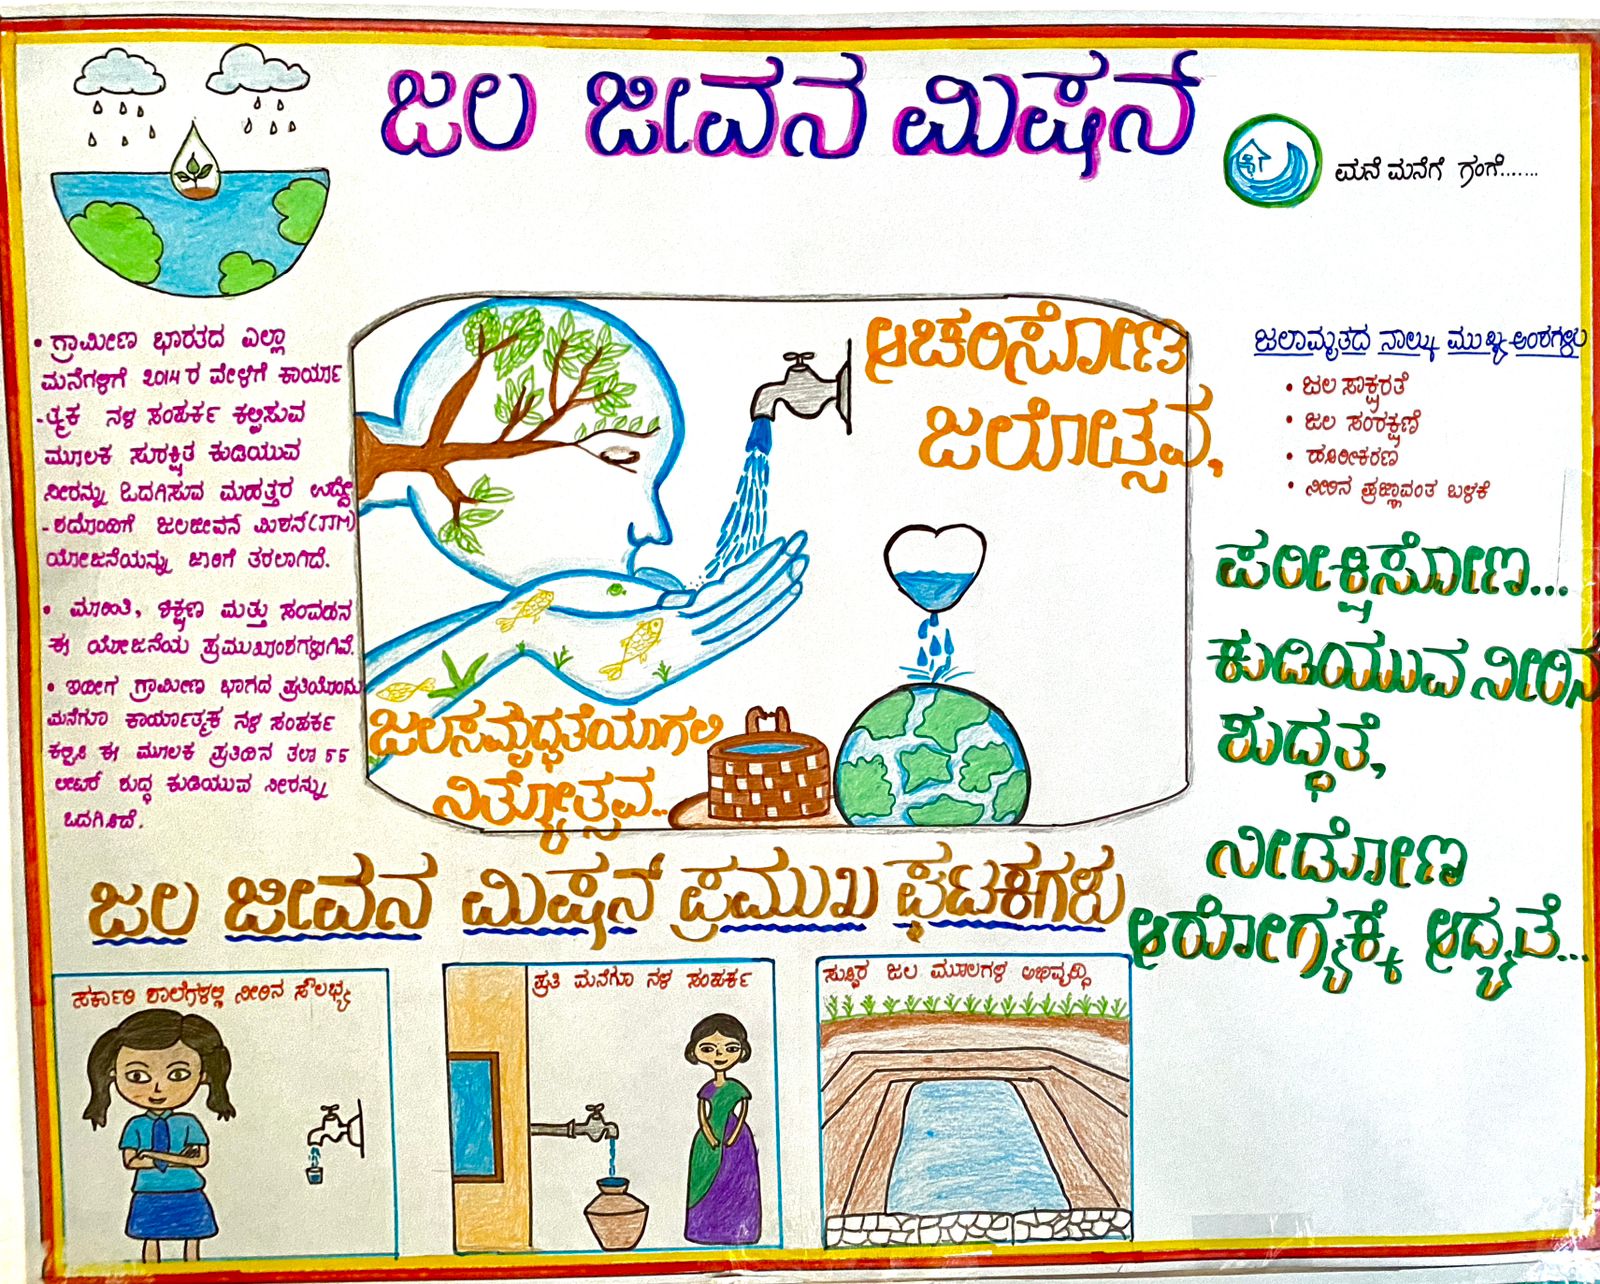 ಜಲ ಜೀವನ ಮಿಷನ್
ಮನೆ ಮನೆಗೆ ಗಂಗೆ.......
• ಗ್ರಾಮೀಣ ಭಾರತದ ಎಲ್ಲಾ
ಮನೆಗಳಿಗೆ 2014 ರ ವೇಳೆಗೆ ಕಾರ್ಯಾ
-ತ್ಮಕ ನಳ ಸಂಪರ್ಕ ಕಲ್ಪಿಸುವ
ಮೂಲಕ ಸುರಕ್ಷಿತ ಕುಡಿಯುವ
ನೀರನ್ನು ಒದಗಿಸುವ ಮಹತ್ತರ ಉದ್ದೇ
-ಶದೊಂದಿಗೆ ಜಲಜೀವನ ಮಿಶನ್(JJM)
ಯೋಜನೆಯನ್ನು ಜಾರಿಗೆ ತರಲಾಗಿದೆ.
• ಮಾಹಿತಿ, ಶಿಕ್ಷಣ ಮತ್ತು ಸಂವಹನ
ಈ ಯೋಜನೆಯ ಪ್ರಮುಖಾಂಶಗಳಾಗಿವೆ.
• ಗ್ರಾಮೀಣ ಭಾಗದ ಪ್ರತಿಯೊಂದು
ಮನೆಗೂ ಕಾರ್ಯಾತ್ಮಕ ನಳ ಸಂಪರ್ಕ
ಕಲ್ಪಿಸಿ ಈ ಮೂಲಕ ಪ್ರತಿದಿನ ತಲಾ 55
ಲೀಟರ್ ಶುದ್ಧ ಕುಡಿಯುವ ನೀರನ್ನು
ಒದಗಿಸಿದೆ.
ಆಚರಿಸೋಣ
ಜಲೋತ್ಸವ,
ಜಲಸಮೃದ್ಧತೆಯಾಗಲಿ
ನಿತ್ಯೋತ್ಸವ..
ಜಲಾಮೃತದ ನಾಲ್ಕು ಮುಖ್ಯ ಅಂಶಗಳು
• ಜಲ ಸಾಕ್ಷರತೆ
• ಜಲ ಸಂರಕ್ಷಣೆ
• ಹಸಿರೀಕರಣ
• ನೀರಿನ ಪ್ರಜ್ಞಾವಂತ ಬಳಕೆ
ಪರೀಕ್ಷಿಸೋಣ...
ಕುಡಿಯುವ ನೀರಿನ
ಶುದ್ಧತೆ,
ನೀಡೋಣ
ಆರೋಗ್ಯಕ್ಕೆ ಆದ್ಯತೆ...
ಜಲ ಜೀವನ ಮಿಷನ್ ಪ್ರಮುಖ ಘಟಕಗಳು
ಸರ್ಕಾರಿ ಶಾಲೆಗಳಲ್ಲಿ ನೀರಿನ ಸೌಲಭ್ಯ
ಪ್ರತಿ ಮನೆಗೂ ನಳ ಸಂಪರ್ಕ
ಸುಸ್ಥಿರ ಜಲ ಮೂಲಗಳ ಅಭಿವೃದ್ಧಿ